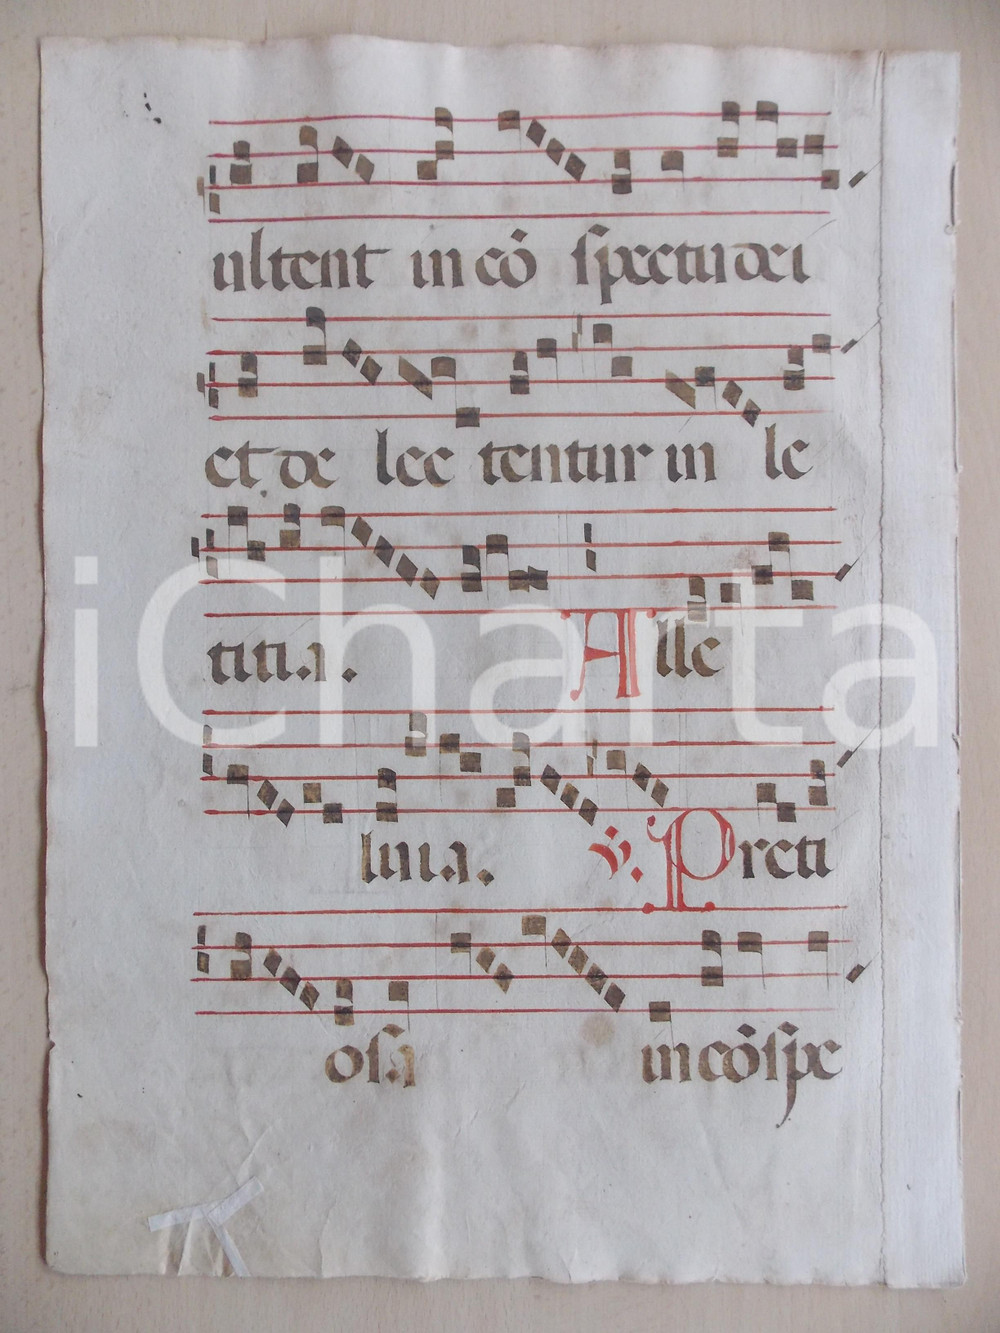 ultent in cō spectu dei
et de lec tentur in le
titi.a. Alle
luia. v. Preti
osa in cō spe
iCharta